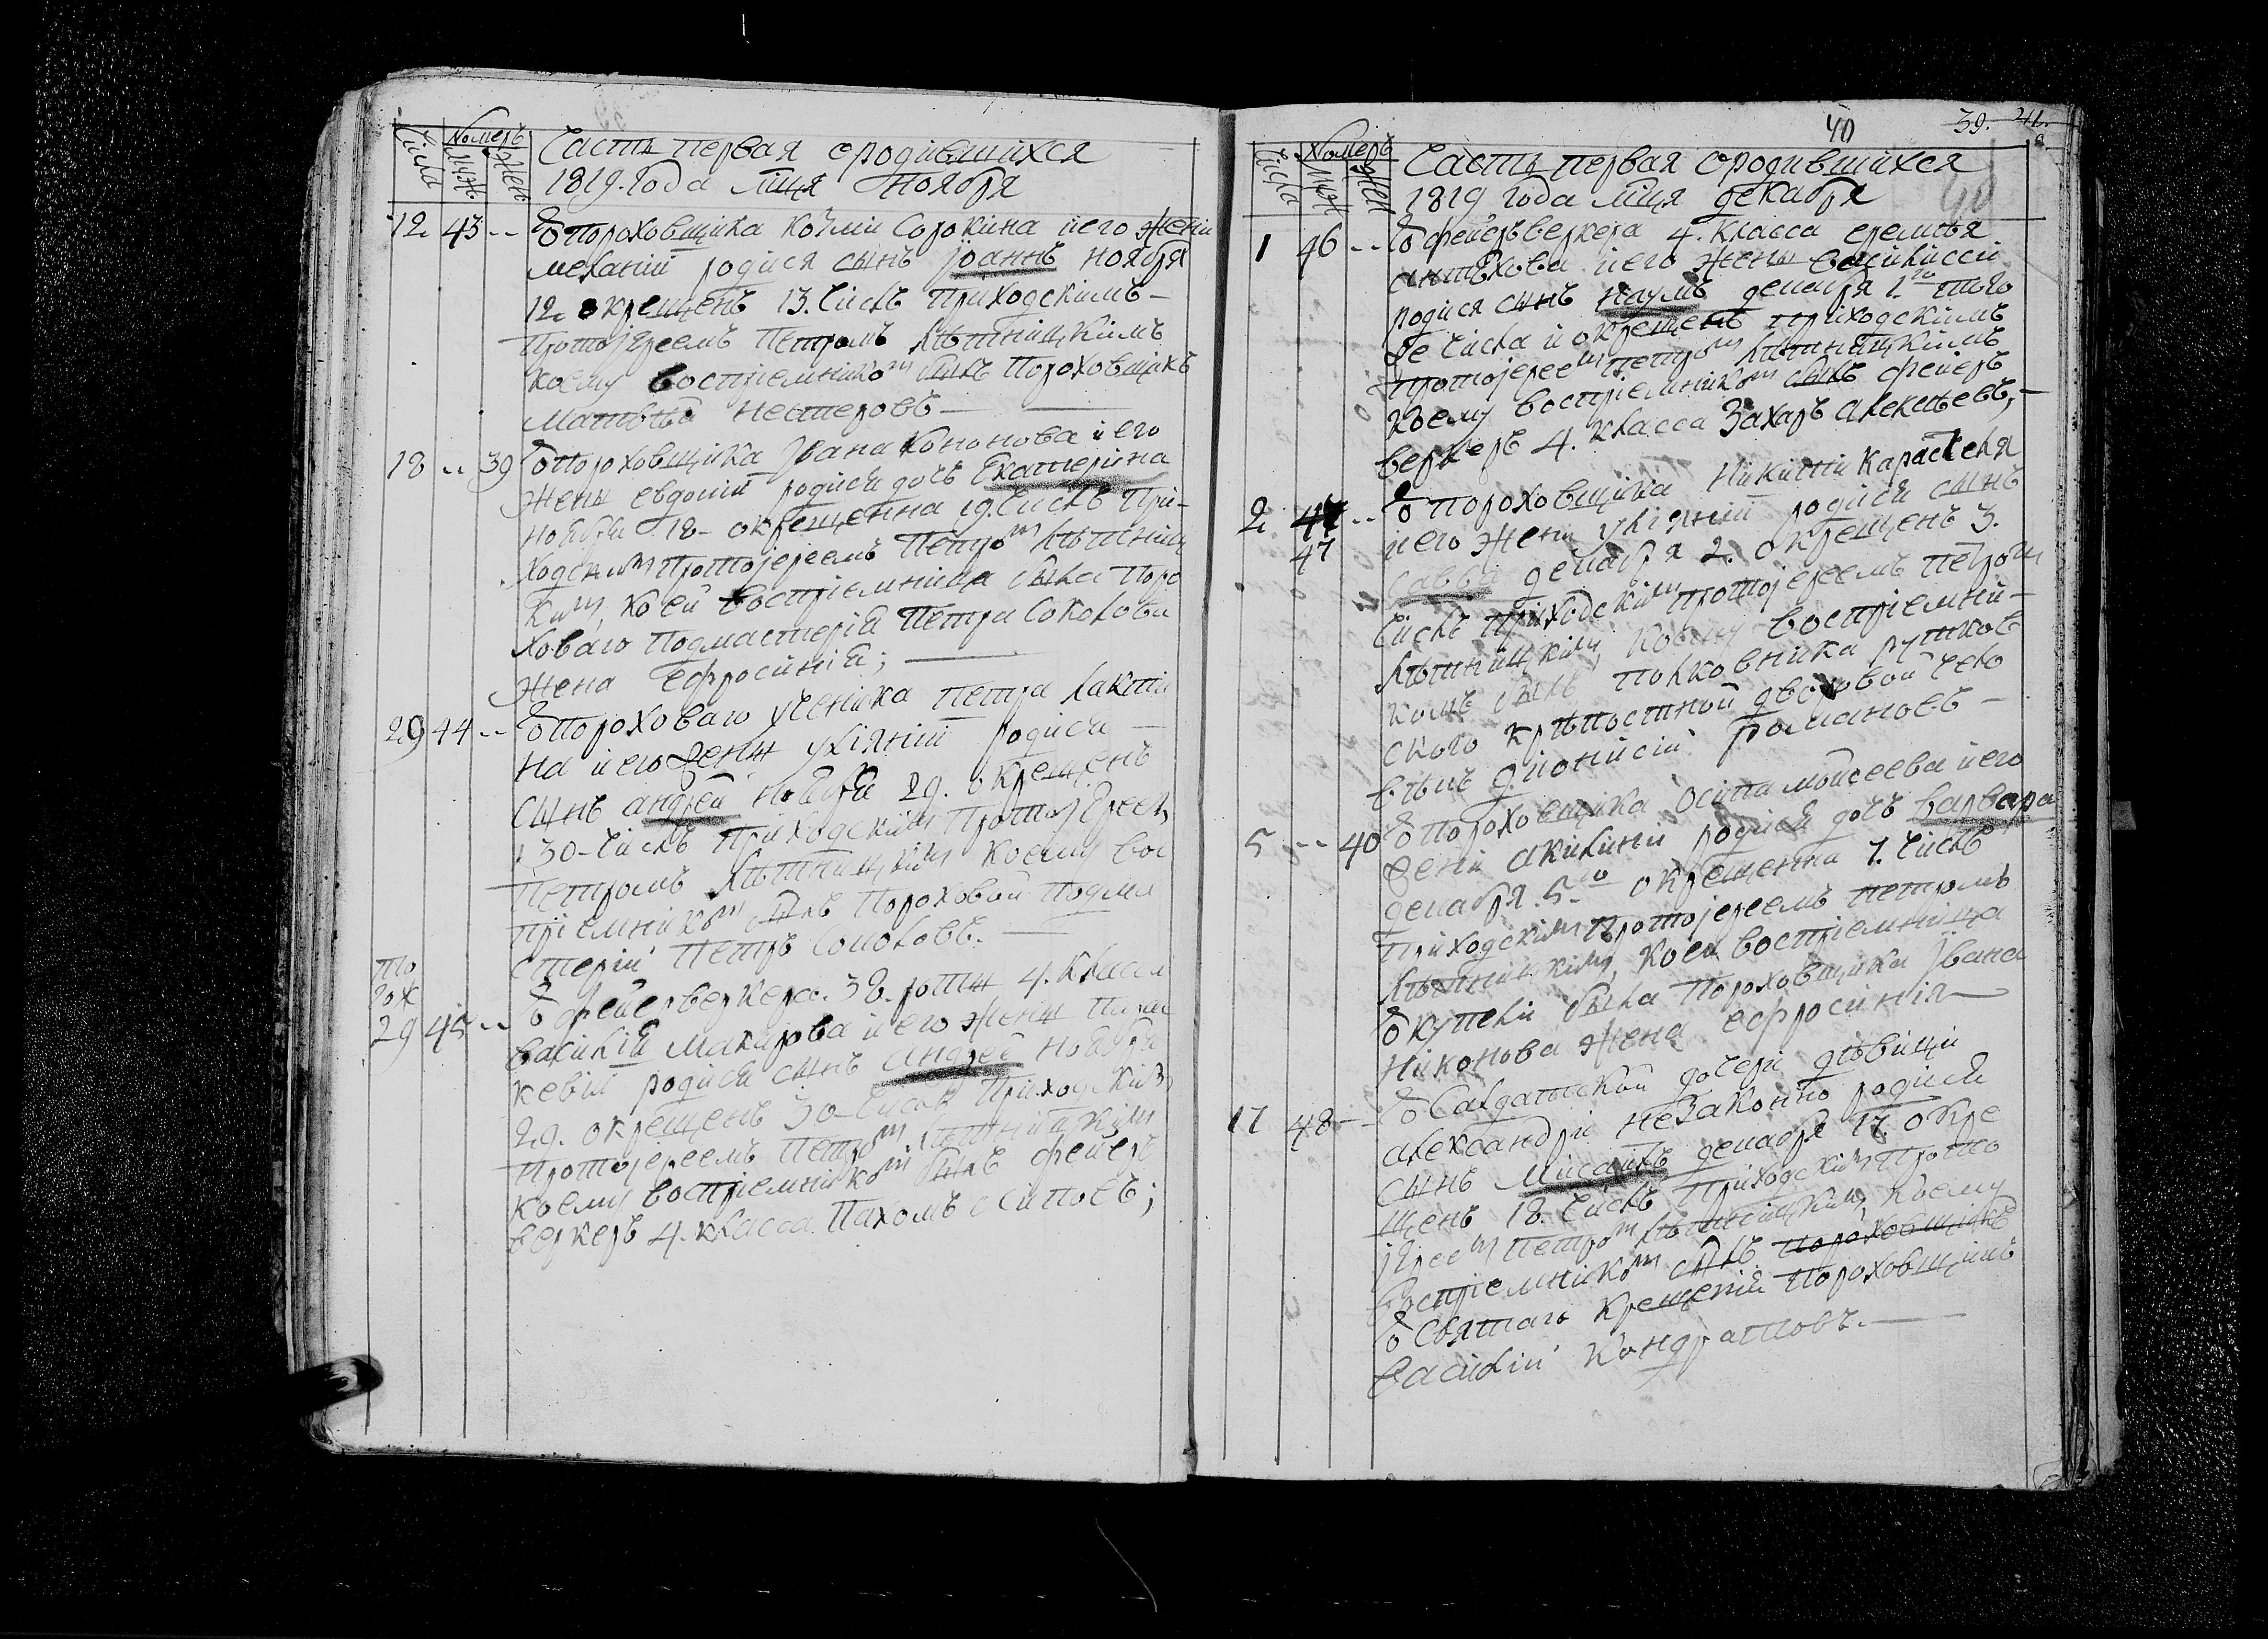 Числа Номеръ Муж. Жен.
Часть первая ородившихся
1819. Года мца Ноября
12. 43 -- Ѿ Пороховщика Козми Сорокина иего жены
мелании родися сынъ Іоаннъ ноября
12. окрещенъ 13. числъ приходскимъ –
Протоіереемъ Петромъ Лѣтницкимъ
коему воспріемникомъ былъ Пороховщикъ
Матвѣй Нестеровъ —
18 -- 39 Ѿ Пороховщика Ивана Кононова иего
жены евдокии родися дочь Екатерина
ноября 18 - окрещенна 19. числъ При-
ходскимъ Протоіереемъ Петромъ Лѣтниц
кимъ, коей воспріемница была Поро
ховаго Подмастерія Петра Соколова
жена Ефросинія; —
29 44 -- Ѿ Пороховаго ученика петра лакти
на иего жены уліянии родися —
сынъ андрей ноября 29. окрещенъ
30 - числъ Приходскимъ Протоіереем,
Петромъ Лѣтницкимъ коему вос
пріемникомъ былъ Пороховой Подма
стерій Петръ Соколовъ. —
то
гож
29 45 -- Ѿ Фейерверкера. 38. роты 4. класса
василія макарова иего жены Парас
кевіи родися сынъ андрей ноября
29. окрещенъ 30 - числъ Приходскимъ
Протоіереемъ Петромъ Лѣтницкимъ
коему воспріемникомъ былъ фейер
веркеръ 4. класса Пахомъ осиповъ;
40 39. 41.
Числа Номеръ Муж Жен
Часть первая ородившихся
1819 Года мца декабря
40
1 46 -- Ѿ фейерверкера 4. класса еремѣя
антѣхова иего жены василиссы
родися сынъ наумъ декабря 1.го того
же числа и окрещенъ приходскимъ
протоіереемъ петромъ лѣтницкимъ
коему воспріемникомъ былъ фейер
веркеръ 4. класса Захаръ алексѣевъ, —
2 47 47 -- Ѿ пороховщика Никиты Караселя
иего жены уліянии родися сынъ
Савва декабря 2. окрещенъ 3.
числъ приходскимъ протоіереемъ петром
Лѣтницкимъ, коему воспріемни-
комъ былъ полковника рутков
скаго крѣпостной дворовой чело
вѣкъ дионисій романовъ —
5 -- 40 Ѿ пороховщика осипа моисеева иего
жены акилины родися дочь варвара
декабря. 5.го окрещенна 7. числъ
приходскимъ Протоіереемъ петромъ
Лѣтницкимъ, коей воспріемница
Ѿ купели была Пороховщика Ивана
Никонова жена ефросинія —
17 48 -- Ѿ Салдатской дочери дѣвицы
александры незаконно родися
сынъ Мисаилъ декабря 17. окре
щенъ 18. числъ Приходскимъ Прото
іереемъ Петромъ Лѣтницкимъ, коему
воспріемникомъ былъ пороховщикъ
Ѿ Святаго Крещенія Пороховщикъ
Василій Кондратовъ. —